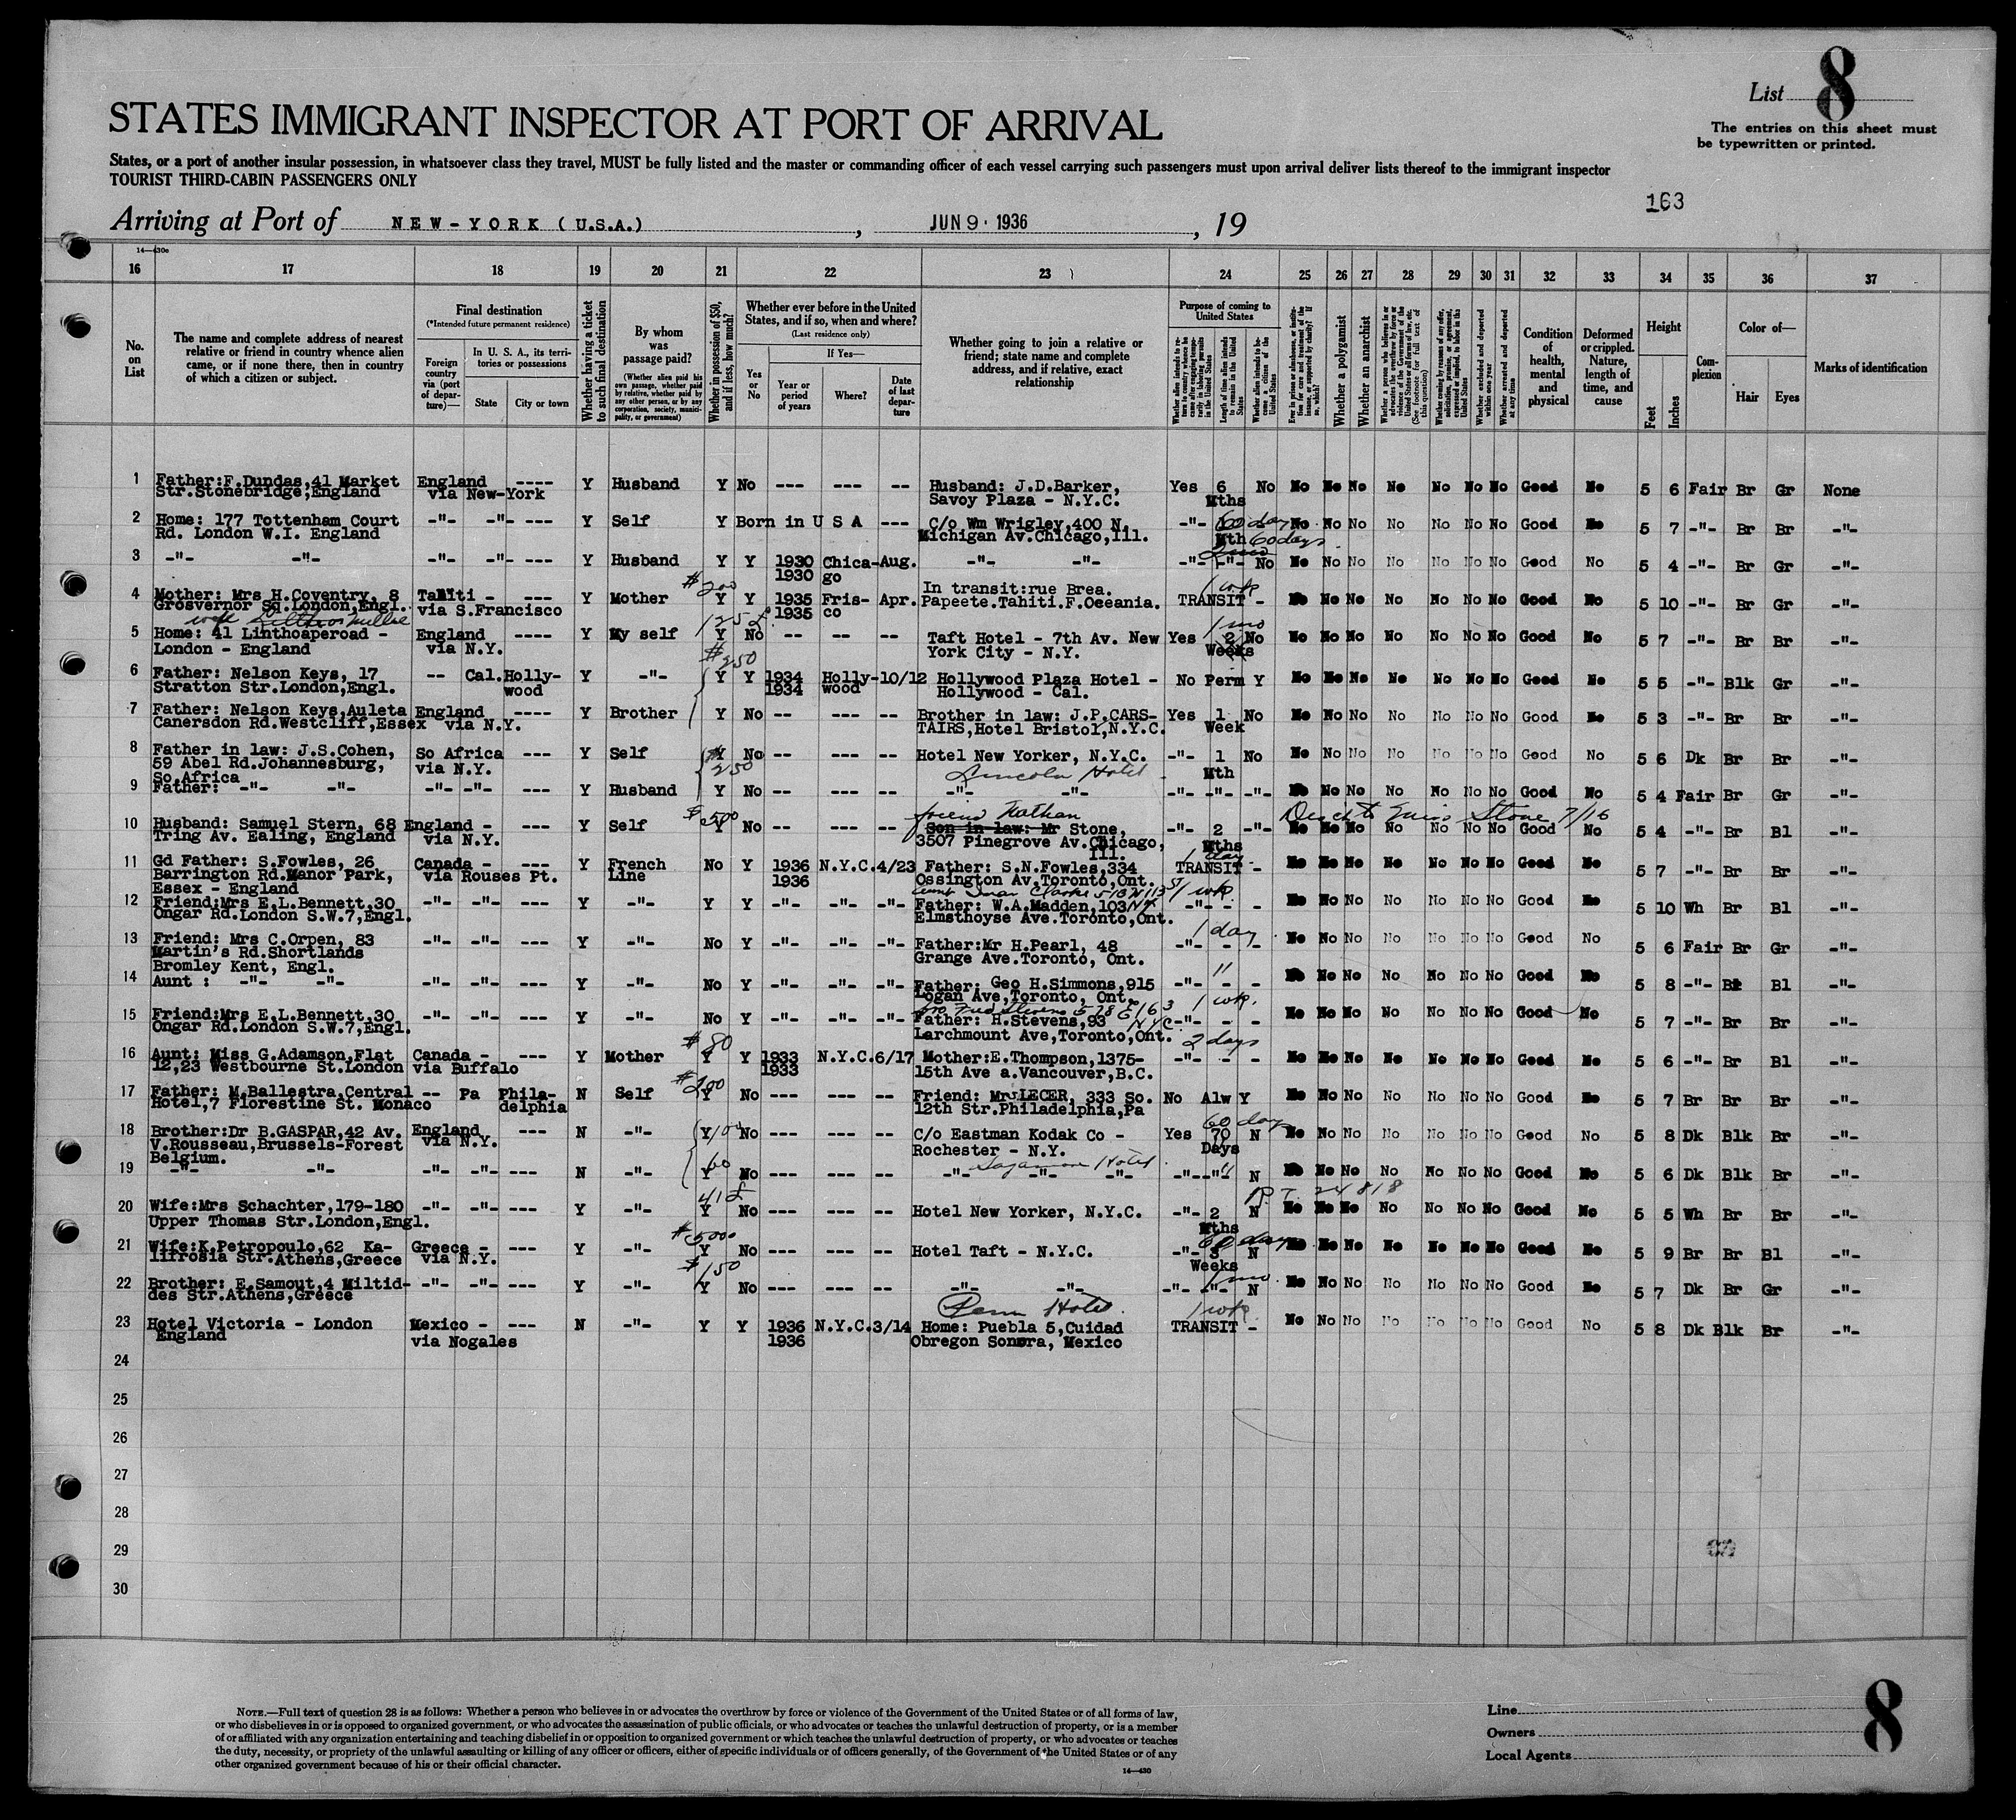 List 8
The entries on this sheet must
be typewritten or printed.
STATES IMMIGRANT INSPECTOR AT PORT OF ARRIVAL
States, or a port of another insular possession, in whatsoever class they travel, MUST be fully listed and the master or commanding officer of each vessel carrying such passengers must upon arrival deliver lists thereof to the immigrant inspector
TOURIST THIRD-CABIN PASSENGERS ONLY
163
Arriving at Port of NEW-YORK (U.S.A.), JUN 9 · 1936, 19
14—430e
16 17 18 19 20 21 22 23 24 25 26 27 28 29 30 31 32 33 34 35 36 37
No. on List
The name and complete address of nearest
relative or friend in country whence alien
came, or if none there, then in country
of which a citizen or subject.
Final destination
(*Intended future permanent residence)
Foreign country via (port of departure)—
In U. S. A., its territories or possessions
State
City or town
Whether having a ticket to such final destination
By whom was passage paid?
(Whether alien paid his own passage, whether paid by relative, whether paid by any other person, or by any corporation, society, municipality, or government)
Whether in possession of $50, and if less, how much?
Whether ever before in the United States, and if so, when and where?
(Last residence only)
Yes or No
If Yes—
Year or period of years
Where?
Date of last departure
Whether going to join a relative or
friend; state name and complete
address, and if relative, exact
relationship
Purpose of coming to United States
Whether alien intends to return to country whence he came after engaging temporarily in laboring pursuits in the United States
Length of time alien intends to remain in the United States
Whether alien intends to become a citizen of the United States
Ever in prison or almshouse, or institution for care and treatment of the insane, or supported by charity? If so, which?
Whether a polygamist
Whether an anarchist
Whether a person who believes in or advocates the overthrow by force or violence of the Government of the United States or all forms of law, etc. (See footnote for full text of this question)
Whether coming by reasons of any offer, solicitation, promise, or agreement, expressed or implied, to labor in the United States
Whether excluded and deported within one year
Whether arrested and deported at any time
Condition of health, mental and physical
Deformed or crippled. Nature, length of time, and cause
Height
Feet
Inches
Complexion
Color of—
Hair
Eyes
Marks of identification
1 Father:F.Dundas,41 Market England ---- Y Husband Y No --- --- -- Husband: J.D.Barker, Yes 6 No No No No No No No No Good No 5 6 Fair Br Gr None
Str.Stonebridge;England via New-York Savoy Plaza - N.Y.C. Mths
2 Home: 177 Tottenham Court -"- -"- --- Y Self Y Born in U S A --- C/o Wm Wrigley,400 N. -"- 60 days No No No No No No No Good No 5 7 -"- Br Br -"-
Rd. London W.I. England Michigan Av.Chicago,Ill. Mth 60 days
3 -"- -"- -"- -"- --- Y Husband Y Y 1930 Chica-Aug. -"- -"- -"- -"- No No No No No No No No Good No 5 4 -"- Br Gr -"-
1930 go
4 Mother: Mrs H.Coventry, 8 Tahiti - --- Y Mother $200 Y Y 1935 Fris- Apr. In transit:rue Brea. 1 wk No No No No No No No Good No 5 10 -"- Br Gr -"-
Grosvenor Sq.London,Engl. via S.Francisco 1935 co Papeete.Tahiti.F.Oceania. TRANSIT -
wife
5 Home: 41 Linthoaperoad - England ---- Y My self 125 £ Y No -- -- -- Taft Hotel - 7th Av. New Yes 1 mo 2 No No No No No No No No Good No 5 7 -"- Br Br -"-
London - England via N.Y. York City - N.Y. Weeks
6 Father: Nelson Keys, 17 -- Cal.Holly- Y -"- $250 Y Y 1934 Holly-10/12 Hollywood Plaza Hotel - No Perm Y No No No No No No No Good No 5 5 -"- Blk Gr -"-
Stratton Str.London,Engl. wood 1934 wood Hollywood - Cal.
7 Father: Nelson Keys,Auleta England ---- Y Brother Y No -- --- -- Brother in law: J.P.CARS- Yes 1 No No No No No No No No Good No 5 3 -"- Br Br -"-
Canersdon Rd.Westcliff,Essex via N.Y. TAIRS,Hotel Bristol,N.Y.C. Week
8 Father in law: J.S.Cohen, So Africa --- Y Self Y No -- --- -- Hotel New Yorker, N.Y.C. -"- 1 No No No No No No No No Good No 5 6 Dk Br Br -"-
59 Abel Rd.Johannesburg, via N.Y. $250 Lincoln Hotel Mth
So.Africa
9 Father: -"- -"- -"- -"- --- Y Husband Y No -- --- -- -"- -"- -"- -"- -"- No No No No No No No Good No 5 4 Fair Br Gr -"-
10 Husband: Samuel Stern, 68 England - --- Y Self $500 Y No -- --- -- friend Nathan Son in law: Mr Stone, -"- 2 -"- No No No No No No No Good No 5 4 -"- Br Bl -"-
Tring Av. Ealing, England via N.Y. 3507 Pinegrove Av.Chicago, Mths Stone 7/16
Ill.
11 Gd Father: S.Fowles, 26 Canada - --- Y French No Y 1936 N.Y.C.4/23 Father: S.N.Fowles,334 1 day TRANSIT - No No No No No No No Good No 5 7 -"- Br Br -"-
Barrington Rd.Manor Park, via Rouses Pt. Line 1936 Ossington Av,Toronto,Ont.
Essex - England
12 Friend:Mrs E.L.Bennett,30 -"- -"- --- Y -"- Y Y -"- -"- -"- Father: W.A.Madden,103 1 wk -"- - - No No No No No No No Good No 5 10 Wh Br Bl -"-
Ongar Rd.London S.W.7,Engl. Elmsthoyse Ave.Toronto,Ont.
13 Friend: Mrs C.Orpen, 83 -"- -"- --- Y -"- No Y -"- -"- -"- Father:Mr H.Pearl, 48 1 day -"- - - No No No No No No No Good No 5 6 Fair Br Gr -"-
Martin's Rd.Shortlands Grange Ave.Toronto, Ont.
Bromley Kent, Engl.
14 Aunt : -"- -"- -"- -"- --- Y -"- No Y -"- -"- -"- Father: Geo H.Simmons,915 " -"- - - No No No No No No No Good No 5 8 -"- Bl -"-
Logan Ave,Toronto, Ont.
15 Friend:Mrs E.L.Bennett,30 -"- -"- --- Y -"- No Y -"- -"- -"- Father: H.Stevens,93 1 wk. -"- - - No No No No No No No Good No 5 7 -"- Br Br -"-
Ongar Rd.London S.W.7,Engl. Larchmount Ave,Toronto,Ont.
16 Aunt: Miss G.Adamson,Flat Canada - --- Y Mother $80 Y Y 1933 N.Y.C.6/17 Mother:E.Thompson,1375- 2 days -"- - - No No No No No No No Good No 5 6 -"- Br Bl -"-
12,23 Westbourne St.London via Buffalo 1933 15th Ave a.Vancouver,B.C.
17 Father: M.Ballestra,Central -- Pa Phila- N Self $200 Y No --- --- -- Friend: Mr LECER, 333 So. No Alw Y No No No No No No No Good No 5 7 Br Br Br -"-
Hotel,7 Florestine St. Monaco delphia 12th Str.Philadelphia,Pa
18 Brother:Dr B.GASPAR,42 Av. England --- N -"- Y 100 No --- --- -- C/o Eastman Kodak Co - Yes 60 days 70 N No No No No No No No Good No 5 8 Dk Blk Br -"-
V.Rousseau,Brussels-Forest via N.Y. Rochester - N.Y. Days
Belgium.
19 -"- -"- -"- -"- --- N -"- 60 Y No --- --- -- Sagamore Hotel -"- -"- -"- -"- -"- N No No No No No No No Good No 5 6 Dk Blk Br -"-
20 Wife:Mrs Schachter,179-180 -"- -"- --- Y -"- 41 £ Y No --- --- -- Hotel New Yorker, N.Y.C. -"- 2 N No No No No No No No Good No 5 5 Wh Br Br -"-
Upper Thomas Str.London,Engl. Mths 24818
21 Wife:K.Petropoulo,62 Ka- Greece - --- Y -"- $5000 Y No --- --- -- Hotel Taft - N.Y.C. -"- 60 days 3 N No No No No No No No Good No 5 9 Br Br Bl -"-
lifrosia Str.Athens,Greece via N.Y. Weeks
22 Brother: E.Samout,4 Miltid- -"- -"- --- Y -"- $150 Y No --- --- -- -"- -"- -"- 1 mo. -"- N No No No No No No No Good No 5 7 Dk Br Gr -"-
des Str.Athens,Greece Penn Hotel.
23 Hotel Victoria - London Mexico - --- N -"- Y Y 1936 N.Y.C.3/14 Home: Puebla 5,Cuidad 1 wk TRANSIT - No No No No No No No Good No 5 8 Dk Blk Br -"-
England via Nogales 1936 Obregon Sonora, Mexico
24
25
26
27
28
29
30
NOTE.—Full text of question 28 is as follows: Whether a person who believes in or advocates the overthrow by force or violence of the Government of the United States or of all forms of law,
or who disbelieves in or is opposed to organized government, or who advocates the assassination of public officials, or who advocates or teaches the unlawful destruction of property, or is a member
of or affiliated with any organization entertaining and teaching disbelief in or opposition to organized government or which teaches the unlawful destruction of property, or who advocates or teaches
the duty, necessity, or propriety of the unlawful assaulting or killing of any officer or officers, either of specific individuals or of officers generally, of the Government of the United States or of any
other organized government because of his or their official character.
14—430
Line
Owners
Local Agents
8